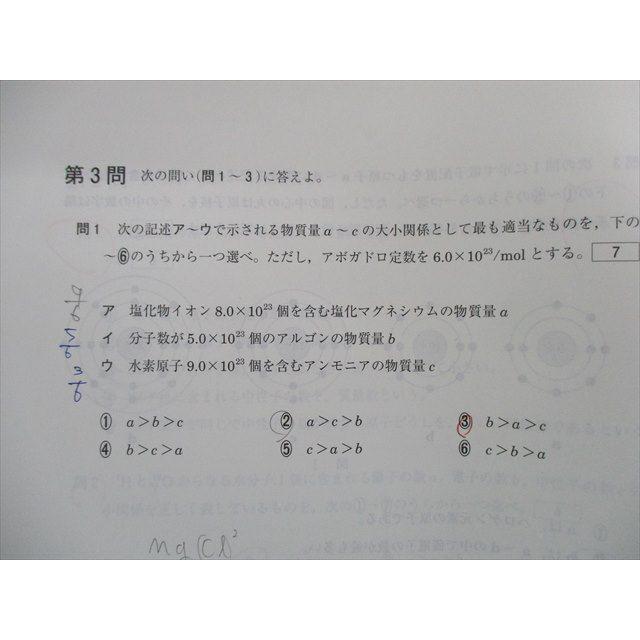 第3問 次の問い(問1～3)に答えよ。
問1 次の記述ア～ウで示される物質量a～cの大小関係として最も適当なものを，下の
～⑥のうちから一つ選べ。ただし，アボガドロ定数を6.0×10²³/molとする。 7
ア 塩化物イオン8.0×10²³個を含む塩化マグネシウムの物質量a
イ 分子数が5.0×10²³個のアルゴンの物質量b
5/6
ウ 水素原子9.0×10²³個を含むアンモニアの物質量c
3/6
① a＞b＞c ② a＞c＞b ③ b＞a＞c
④ b＞c＞a ⑤ c＞a＞b ⑥ c＞b＞a
Mg(Cl)²